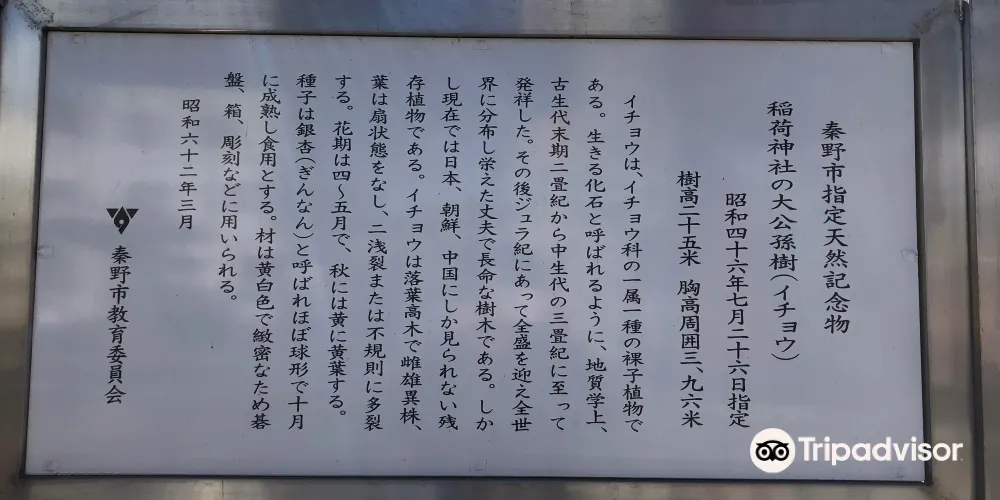 秦野市指定天然記念物
稲荷神社の大公孫樹(イチョウ)
昭和四十六年七月二十六日指定
樹高二十五米 胸高周囲三、九六米
イチョウは、イチョウ科の一属一種の裸子植物で
ある。生きる化石と呼ばれるように、地質学上、
古生代末期二畳紀から中生代の三畳紀に至って
発祥した。その後ジュラ紀にあって全盛を迎え全世
界に分布し栄えた丈夫で長命な樹木である。しか
し現在では日本、朝鮮、中国にしか見られない残
存植物である。イチョウは落葉高木で雌雄異株、
葉は扇状態をなし、二浅裂または不規則に多裂
する。花期は四〜五月で、秋には黄に黄葉する。
種子は銀杏(ぎんなん)と呼ばれほぼ球形で十月
に成熟し食用とする。材は黄白色で緻密なため碁
盤、箱、彫刻などに用いられる。
昭和六十二年三月
秦野市教育委員会
Tripadvisor